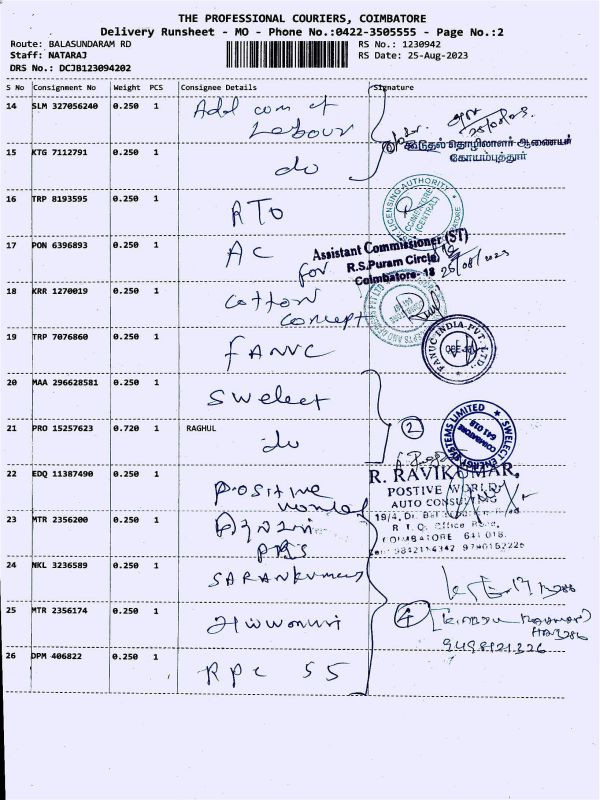 THE PROFESSIONAL COURIERS, COIMBATORE
Delivery Runsheet - MO - Phone No.:0422-3505555 - Page No.:2
Route: BALASUNDARAM RD
RS No.: 1230942
Staff: NATARAJ
RS Date: 25-Aug-2023
DRS No.: DCJB123094202
S No Consignment No Weight PCS Consignee Details Signature
14 SLM 327056240 0.250 1 Addl com of
Labour
கூடுதல் தொழிலாளர் ஆணையர்
கோயம்புத்தூர்
15 KTG 7112791 0.250 1 do
16 TRP 8193595 0.250 1 RTO
LICENSING AUTHORITY
COIMBATORE
(CENTRAL)
17 PON 6396893 0.250 1 AC
for
Assistant Commissioner (ST)
R.S.Puram Circle
Coimbatore-18
25/08/2023
18 KRR 1270019 0.250 1 Cotton
Concept
19 TRP 7076860 0.250 1 FANUC
FANUC INDIA PVT. LTD.,
20 MAA 296628581 0.250 1 Swelect
21 PRO 15257623 0.720 1 RAGHUL do
2
SWELECT ENERGY SYSTEMS LIMITED
COIMBATORE
641 018
22 EDQ 11387490 0.250 1 Positive
world
R. RAVIKUMAR,
POSTIVE WORLD
AUTO CONSULTING
R. T. O. Office Road,
COIMBATORE 641 018.
23 MTR 2356200 0.250 1
24 NKL 3236589 0.250 1 SARANKumar
25 MTR 2356174 0.250 1
4
26 DPM 406822 0.250 1 RPC 55